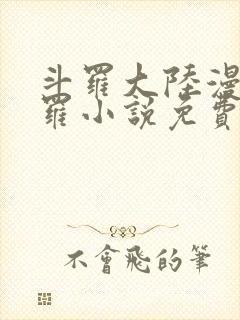 斗羅大陸漫
羅小說免費
不會飛的筆